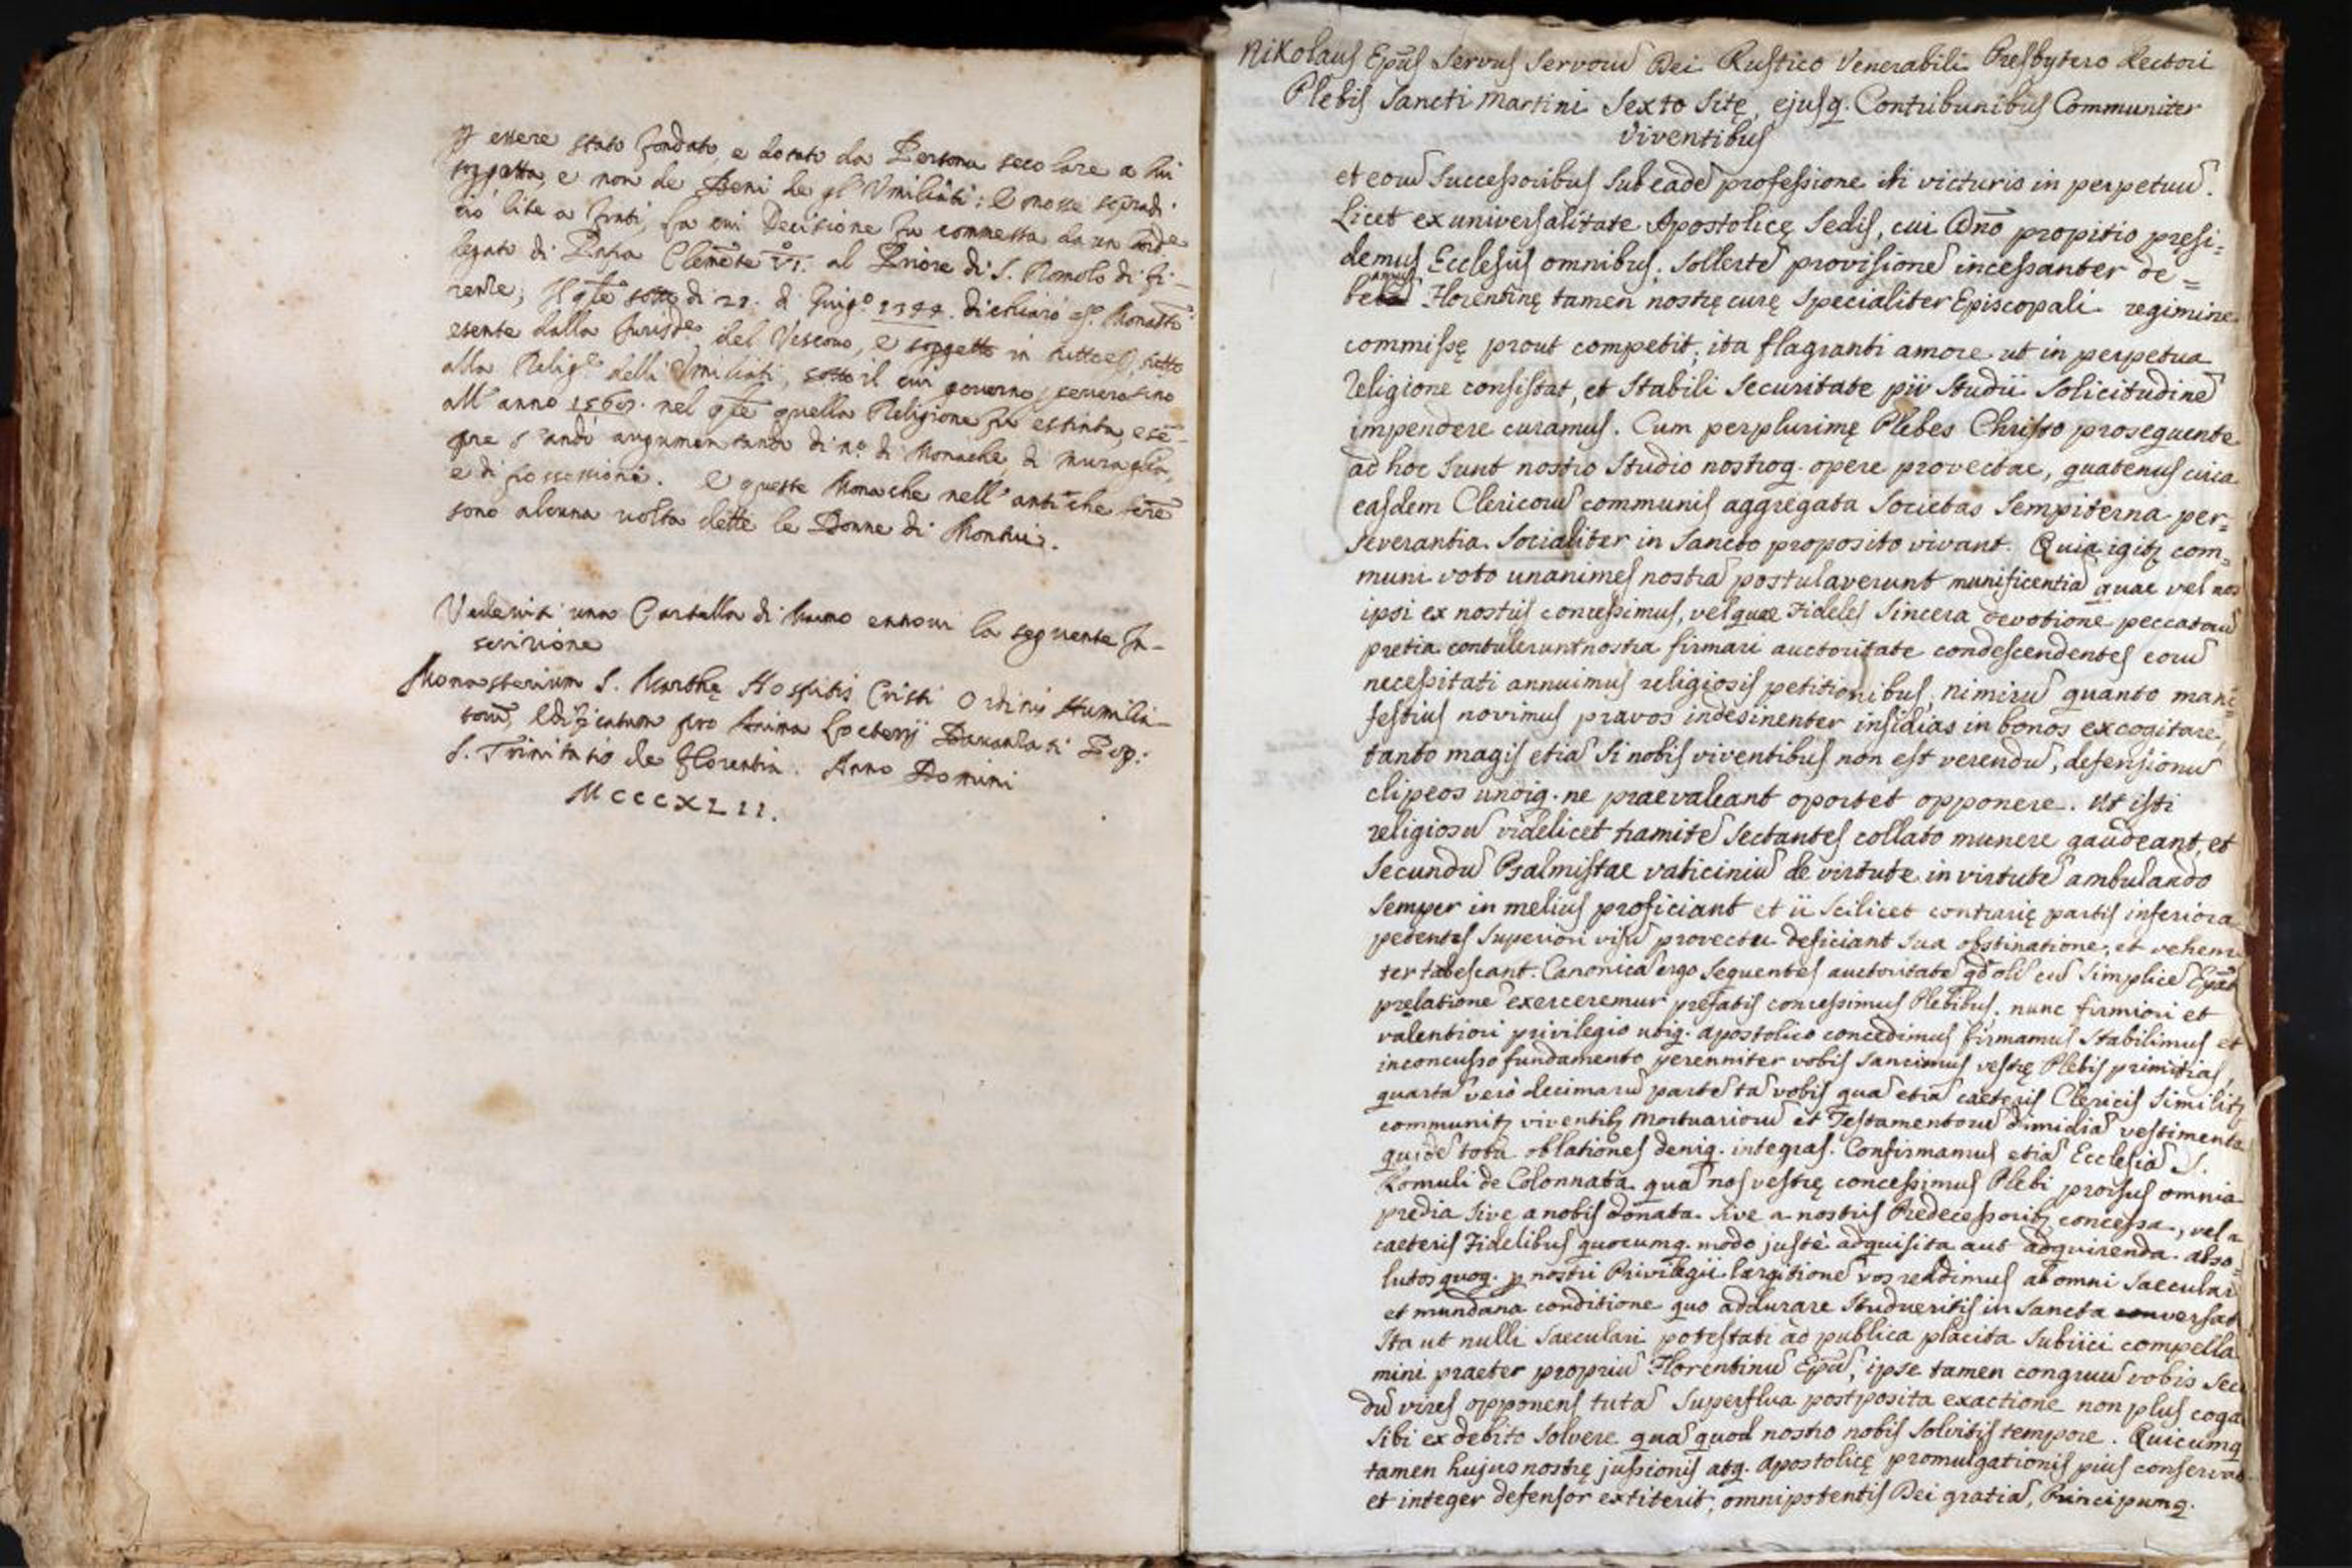 essere stato fondato, e dotato da Persona secolare a lui
soggetta, e non de Beni de gl' Umiliati: e mosse sopradi
ciò lite a fonti, la cui Decisione fu commessa da un
legato di Papa Clemẽte VI. al Priore di S. Romolo di fi-
renze; di 22. di 1344. dichiarò
esente dalla del Vescovo, e soggetto in tutto
alla Relig.e delli Umiliati, sotto il cui governo
all' anno nel quella Religione fu estinta,
pre andò augumentando di n.o di Monache di muraglia,
e di possessioni. E queste Monache nell' antiche
sono alcuna volta dette le Donne di Montui.
Vedevisi una Cartella di Marmo entrovi la seguente In-
scrizione
Monasterium S. Marthę Hospitis Cristi Ordinis Humilia-
torũ, Edificatum pro Anima Locterij Davanzati Pop:
S. Trinitatis de Florentia. Anno Domini
MCCCXLII.
Nikolaus Epũs Servus Servorũ Dei Rustico Venerabili Presbytero Rectori
Plebis Sancti Martini Sexto Sitę, ejusq. Contribunibus Communiter
Viventibus
et eorũ Successoribus Sub eadẽ professione ibi victuris in perpetuũ.
Licet ex universalitate Apostolicę Sedis, cui Dño propitio presi=
demus Ecclesiis omnibus, Sollertẽ provisionẽ incessanter de=
beamus Florentinę tamen nostrę curę Specialiter Episcopali regimine
commissę prout competit, ita flagranti amore ut in perpetua
religione consistat, et Stabili Securitate pii Studii Solicitudinẽ
impendere curamus. Cum perplurimę Plebes Christo prosequente
ad hoc Sunt nostro Studio nostroq. opere provectae, quatenus circa
easdem Clericorũ communis aggregata Societas Sempiterna per=
severantia Socialiter in Sancto proposito vivant. Quia igitʒ com=
muni voto unanimes nostrã postulaverunt munificentiã quae vel nos
ipsi ex nostris concessimus, vel quae Fideles Sincera devotione peccatorũ
pretia contulerunt nostra firmari auctoritate condescendentes eorũ
necessitati annuimus religiosis petitionibus, nimirũ quanto mani=
festius novimus pravos indesinenter insidias in bonos excogitare,
tanto magis etiã Si nobis viventibus non est verendũ, defensionũ
clipeos undiq. ne praevaleant oportet opponere. Ut isti
religiosũ videlicet tramitẽ Sectantes collato munere gaudeant, et
Secundũ Psalmistae vaticiniũ de virtute in virtutẽ ambulando
Semper in melius proficiant et ii Scilicet contrarię partis inferiora
petentes Superiori visũ provectu deficiant Sua obstinatione, et vehemẽ
ter tabescant. Canonicã ergo Sequentes auctoritatẽ qđ olĩ cũ Simplicẽ Epãt
prelationẽ exerceremur prefatis concessimus Plebibus, nunc firmiori et
valentiori privilegio utiq. apostolico concedimus firmamus Stabilimus et
inconcusso fundamento perenniter vobis Sancimus vestrę Plebis primitias,
quartã verò decimarũ partẽ tã vobis quã etiã caeteris Clericis Similitʒ
communitʒ viventibʒ Mortuariorũ et Testamentorũ dimidiã vestimenta
quidẽ tota oblationes deniq. integras. Confirmamus etiã Ecclesiã S.
Romuli de Colonnata quã nos vestrę concessimus Plebi prorsus omnia
predia Sive a nobis donata Sive a nostris Predecessoribʒ concessa, vel a
caeteris Fidelibus quocumq. modo justè adquisita aut adquirenda. abso=
lutos quoq. ꝑ nostri Privilegii largitionẽ vos reddimus ab omni Saeculari
et mundana conditione quo addurare Studueritis in Sancta conversat
Ita ut nulli Saeculari potestati ad publica placita Subiici compella
mini praeter propriũ Florentinũ Epũ, ipse tamen congruũ vobis Secũ
dũ vires opponens tutã Superflua postposita exactione non plus coga
Sibi ex debito Solvere quã quod nostro nobis Solvitis tempore. Quicumq
tamen hujus nostrę jussionis atq. Apostolicę promulgationis pius conservat
et integer defensor extiterit, omnipotentis Dei gratiã, Principumq.